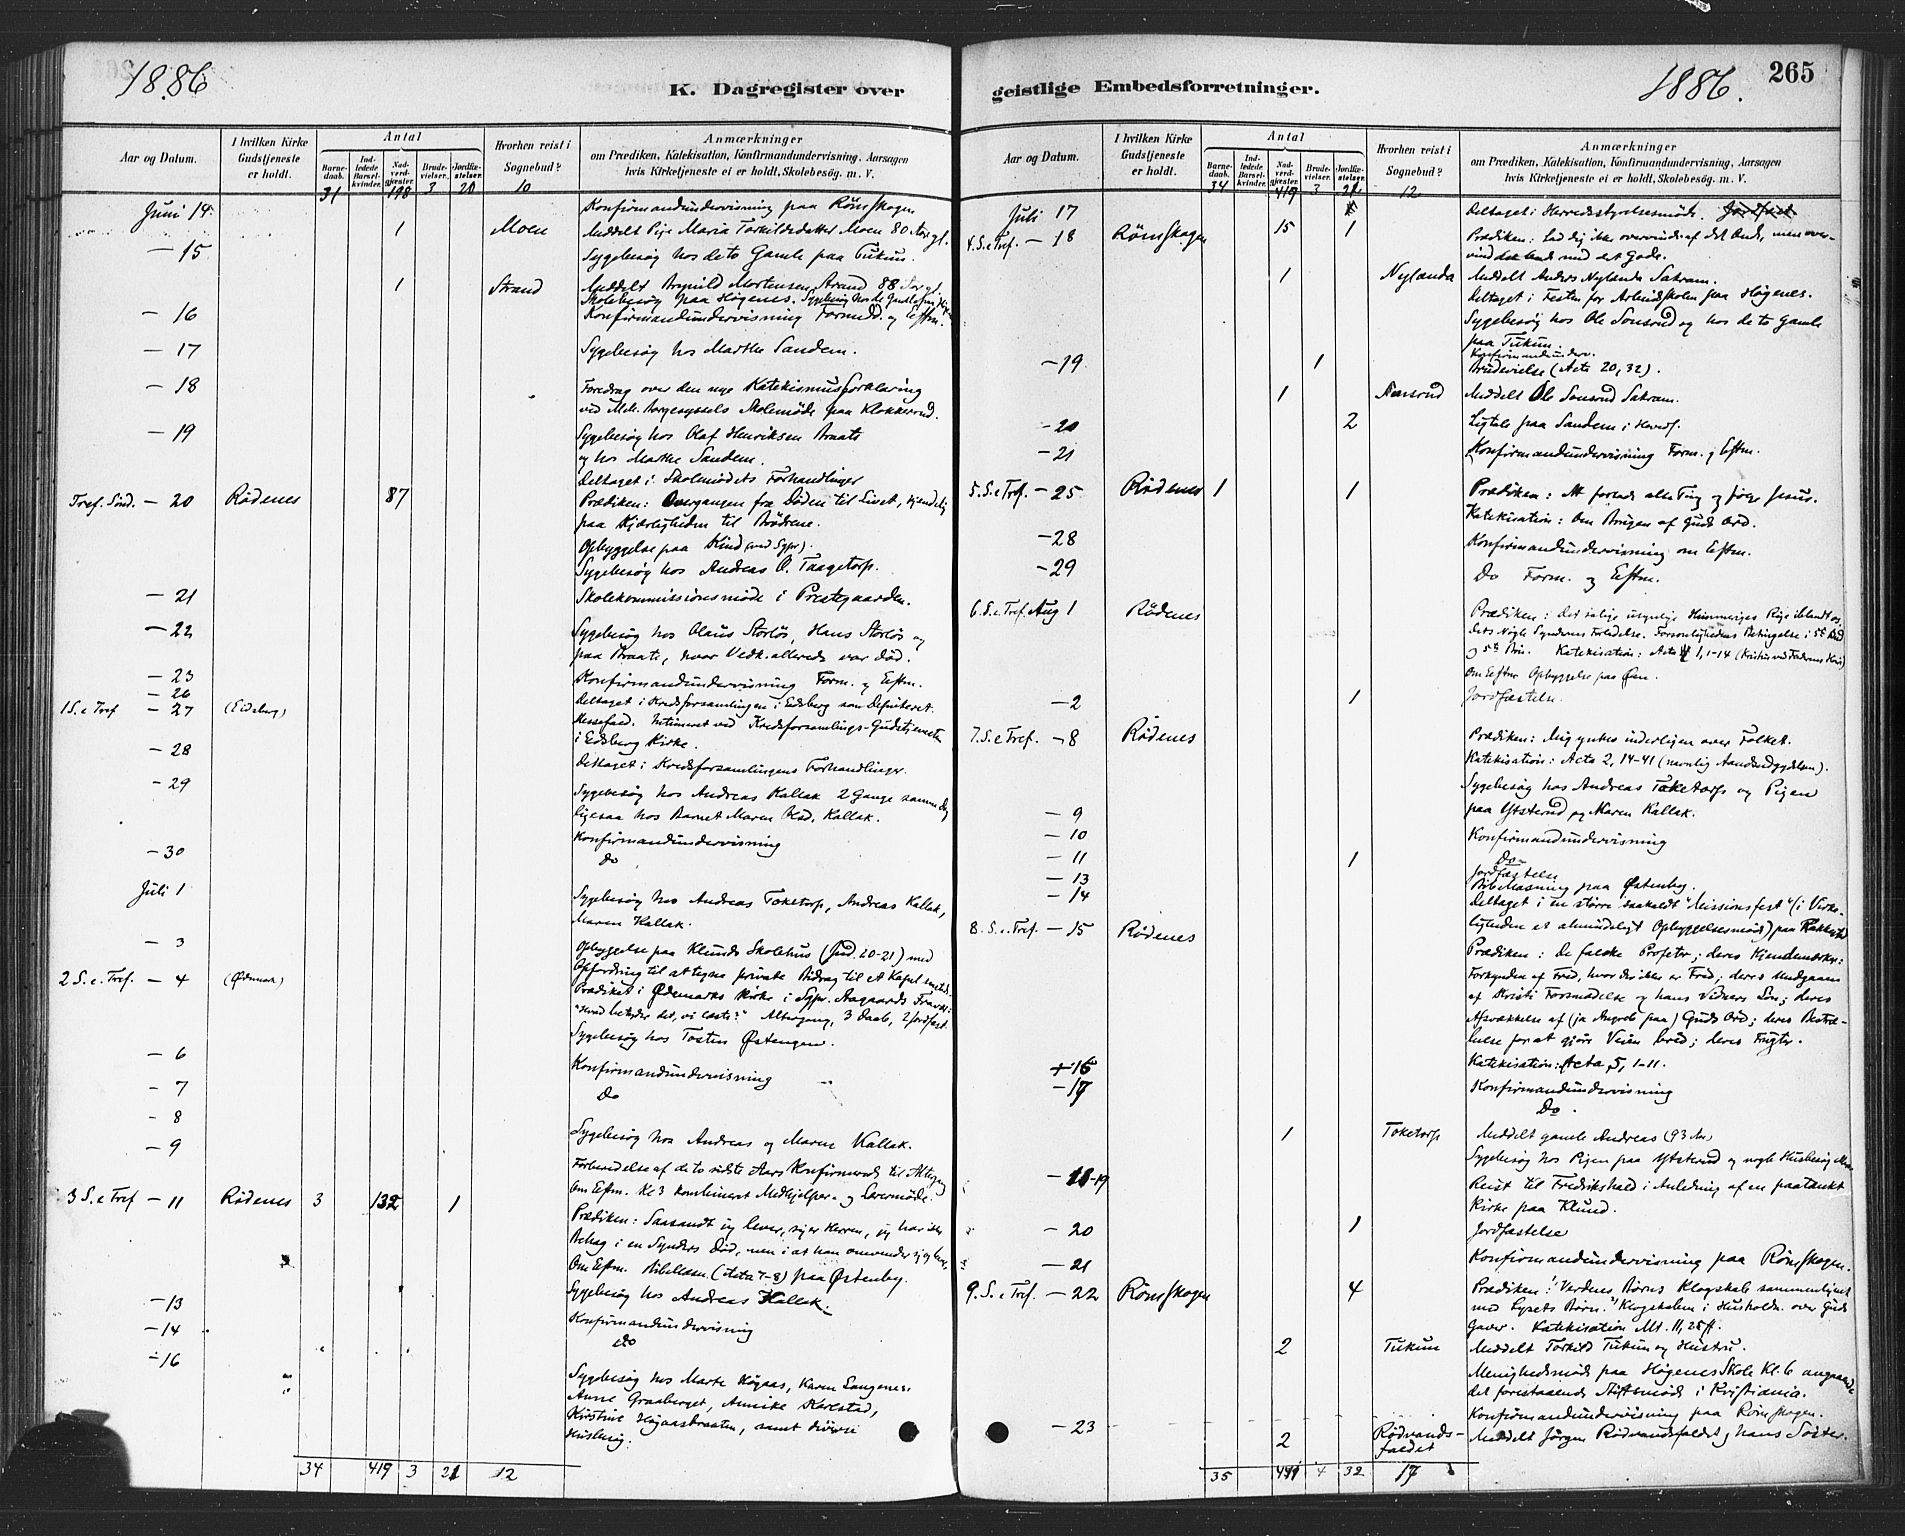 1886
K. Dagregister over
Aar og Datum.
I hvilken Kirke Gudstjeneste er holdt.
Antal
Barnedaab.
Indledede Barselkvinder.
Nadverdgjester.
Brudevielser.
Jordfæstelser.
Hvorhen reist i Sognebud?
Anmærkninger
om Prædiken, Katekisation, Konfirmandundervisning, Aarsagen
hvis Kirketjeneste ei er holdt, Skolebesøg. m. V.
31 198 3 20 10
Juni 14. Konfirmandundervisning paa Rømskogen
1 Moen Meddelt Pige Maria Torkildsdatter Moen 80 Aar gl.
— 15 Sygebesøg hos de to Gamle paa Tukun.
1 Strand Meddelt Mortensen Strand 88 Aar gl.
Skolebesøg paa Høgenes.
— 16 Konfirmandundervisning Formdd. og Eftm.
— 17 Sygebesøg hos Marthe Sandem.
— 18 Foredrag over den nye Katekismusforklaring
ved Skolemøde paa Klokkerud.
— 19 Sygebesøg hos Olaf Henriksen Braate
og hos Marthe Sandem.
Deltaget i Skolemødets Forhandlinger
Tref. Sønd. — 20 Rødenes 87 Prædiken: Overgangen fra Døden til Livet, kjendelig
paa Kjærligheden til Brødrene.
Opbyggelse paa Kind
Sygebesøg hos Andreas O. Taagetorp.
— 21 Skolekommissionsmøde i Præstegaarden.
— 22 Sygebesøg hos Olaus Storløs, Hans Storløs og
paa Braate, hvor Vedk. allerede var død.
— 23 Konfirmandundervisning Form. og Eftm.
— 26 Deltaget i Kredsforsamlingen i Eidsberg som Deputeret.
1 S. e Tref — 27 (Eidsberg) Messefald. ved Kredsforsamlings-Gudstjenesten
i Eidsberg Kirke.
— 28 Deltaget i Kredsforsamlingens Forhandlinger.
— 29 Sygebesøg hos Andreas Kallak 2 Gange samme Dag
ligesaa hos Barnet Maren Kallak.
Konfirmandundervisning
— 30 Do
Juli 1 Sygebesøg hos Andreas Toketorp, Andreas Kallak,
Maren Kallak.
— 3 Opbyggelse paa Klunds Skolehus (Jud. 20-21) med
Opfordring til at tegne private Bidrag til et Kapel
2 S. e. Tref. — 4 (Ødemark) Prædiket i Ødemarks Kirke i Sgpr. Aagaards
"Hvad betyder det, vi læste?" Altergang, 3 Daab, 2 Jordfæst.
Sygebesøg hos Tosten Østengen.
— 6 Konfirmandundervisning
— 7 Do
— 8
— 9 Sygebesøg hos Andreas og Maren Kallak.
Forberedelse af de to sidste Aars Konfirmerede til Altergang
Om Eftm. Kl 3 kombineret Medhjelper- og Lærermøde.
3 S. e Tref — 11 Rødenes 3 132 1 Prædiken: Saasandt jeg lever, siger Herren, jeg har ikke
Behag i en Synders Død, men i at han omvender sig og lever.
Om Eftm. Bibellæsn. (Acta 7-8) paa Østenby.
Sygebesøg hos Andreas Kallak.
— 13 Konfirmandundervisning
— 14 Do
— 16 Sygebesøg hos Marte Kogaas, Karen Langenes,
Anne Graaberget, Annike Karlstad,
Kirstine Høgaasbraaten, samt diverse
Husbesøg.
34 419 3 21 12
geistlige Embedsforretninger.
1886. 265
Aar og Datum.
I hvilken Kirke Gudstjeneste er holdt.
Antal
Barnedaab.
Indledede Barselkvinder.
Nadverdgjester.
Brudevielser.
Jordfæstelser.
Hvorhen reist i Sognebud?
Anmærkninger
om Prædiken, Katekisation, Konfirmandundervisning, Aarsagen
hvis Kirketjeneste ei er holdt, Skolebesøg. m. V.
34 419 3 21 12
Juli 17 Deltaget i Herredsstyrelsesmøde. Jordfæst
4. S. e Tref. — 18 Rømskogen 15 1 Prædiken: Lad dig ikke overvinde af det Onde, men over-
vind det Onde med det Gode.
1 Nylanda Meddelt Anders Nylanda Sakram.
Deltaget i Festen for Arbeidsskolen paa Høgenes.
Sygebesøg hos Ole Sonsrud og hos de to Gamle
paa Tukun.
Konfirmandunderv.
— 19 1 Brudevielse (Acta 20, 32).
1 Sonsrud Meddelt Ole Sonsrud Sakram.
— 20 2 Ligtale paa Sandem i Hovedf.
— 21 Konfirmandundervisning Form. og Eftm.
5. S. e Tref. — 25 Rødenes 1 1 Prædiken: At forlade alle Ting og følge Jesus.
Katekisation: Om Brugen af Guds Ord.
— 28 Konfirmandundervisning om Eftm.
— 29 Do Form. og Eftm.
6. S. e. Tref. Aug 1 Rødenes Prædiken: Det salige usynlige Himmeriges Rige iblandt os,
dets Nøgle Syndernes Forladelse. Forsonlighedens Betingelse i 5te Bud
og 5te Bøn. Katekisation: Acta 1, 1-14
Om Eftm Opbyggelse paa Øien.
— 2 1 Jordfæstelse.
7. S. e Tref. — 8 Rødenes Prædiken: Mig ynkes inderligen over Folket.
Katekisation: Acta 2, 14-41 (navnlig Aandsudgydelsen).
Sygebesøg hos Andreas Toketorp og Pigen
— 9 paa Ytsterud og Maren Kallak.
— 10 Konfirmandundervisning
— 11 1 Do
Jordfæstelse
— 13 Bibellæsning paa Østenby.
— 14 Deltaget i en større saakaldt "Missionsfest" (i Virke-
ligheden et almindeligt Opbyggelsesmøde) paa
8. S. e. Tref. — 15 Rødenes Prædiken: De falske Profeter; deres Kjendemærker:
Forkynden af Fred, hvor der ikke er Fred; deres
af Kristi Forsmædelse og hans Vidners Løn; deres
Afsvækkelse af (ja Angreb paa) Guds Ord; deres Bestræ-
belse for at gjøre Veien bred; deres Frugter.
Katekisation: Acta 5, 1-11.
— 16 Konfirmandundervisning
— 17 Do.
1 Toketorp Meddelt gamle Andreas (93 Aar)
Sygebesøg hos Pigen paa Ytsterud og nogle Husbesøg
— 18-19 Reist til Fredrikshald i Anledning af en paatænkt
Kirke paa Klund.
— 20 1 Jordfæstelse
— 21 Konfirmandundervisning paa Rømskogen.
9. S. e Tref. — 22 Rømskogen 4 Prædiken: Verdens Børns Klogskab sammenlignet
med Lysets Børn. Klogskaben i Husholdn. over Guds
Gaver. Katekisation Mt. 11, 25 ff.
2 Tukun Meddelt Torkild Tukun og Hustru.
Menighedsmøde paa Høgenes Skole Kl. 6 angaaende
det forestaaende Stiftsmøde i Kristiania.
Konfirmandundervisning paa Rømskogen.
— 23 2 Rødvandsfaldet Meddelt Jørgen Rødvandsfaldet og hans Søster.
35 4 32 17